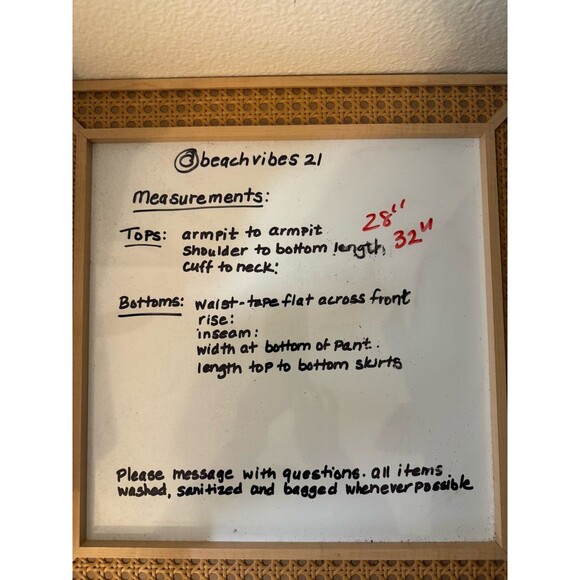 @beachvibes 21
Measurements:
Tops: armpit to armpit 28"
shoulder to bottom length, 32"
cuff to neck:
Bottoms: waist-tape flat across front
rise:
inseam:
width at bottom of pant.
length top to bottom skirts
Please message with questions. all items
washed, sanitized and bagged whenever possible